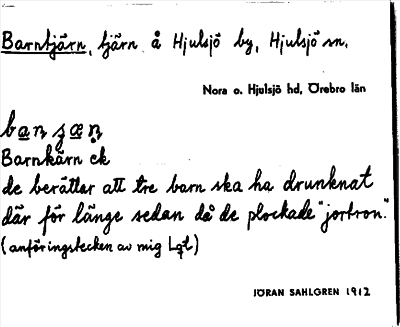 Barntjärn, tjärn å Hjulsjö by, Hjulsjö sn.
Nora o. Hjulsjö hd, Örebro län
Barnkärn ek
de berättar att tre barn ska ha drunknat
där för länge sedan då de plockade "jortron."
(anföringstecken av mig
JÖRAN SAHLGREN 1912